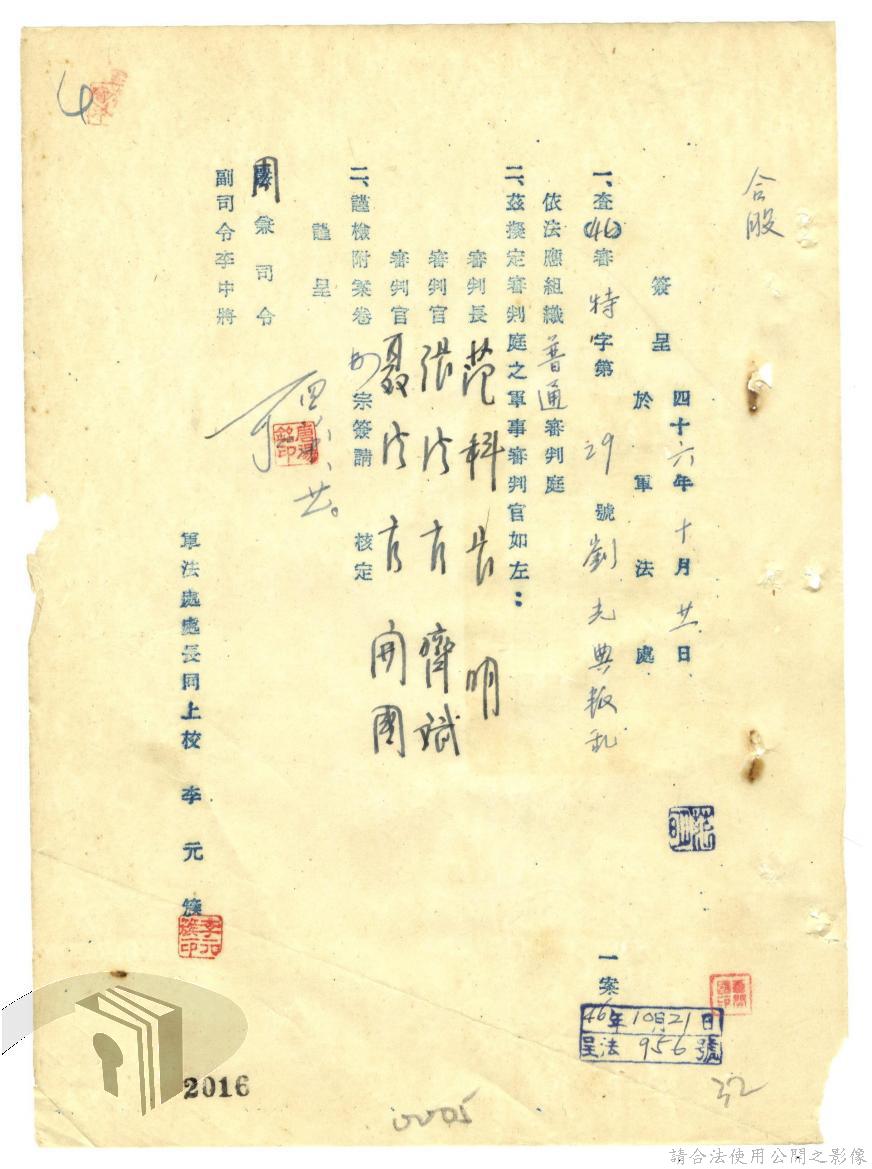 合股
簽呈
四十六年十月廿一日
於軍法處
一、查(46)審特字第29號劉光典叛乱一案
依法應組織普通審判庭
二、茲擬定審判庭之軍事審判官如左：
審判長 范科長明
審判官 張法官齊斌
審判官 聶法官開國
二、謹檢附案卷 宗簽請 核定
謹呈
周兼司令
副司令李中將
軍法處處長同上校 李元簇
李元簇印
46年10月21日
呈法956號
32
2016
0005
請合法使用公開之影像